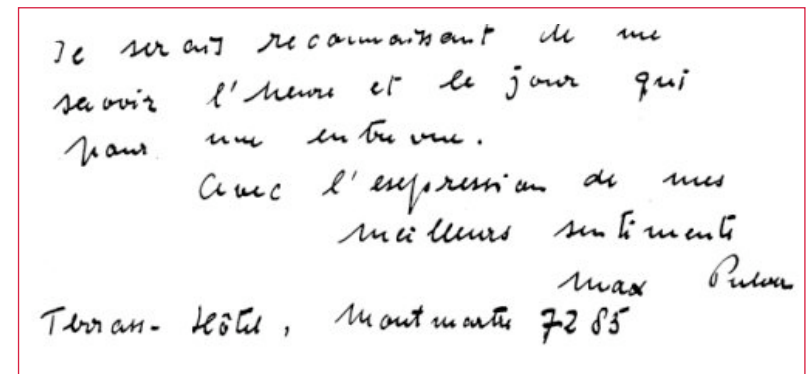 Je serais reconnaissant de me
savoir l'heure et le jour qui
pour une entrevue.
Avec l'expression de mes
meilleurs sentiments
Max Pulver
Terrass-Hôtel, Montmartre 7285